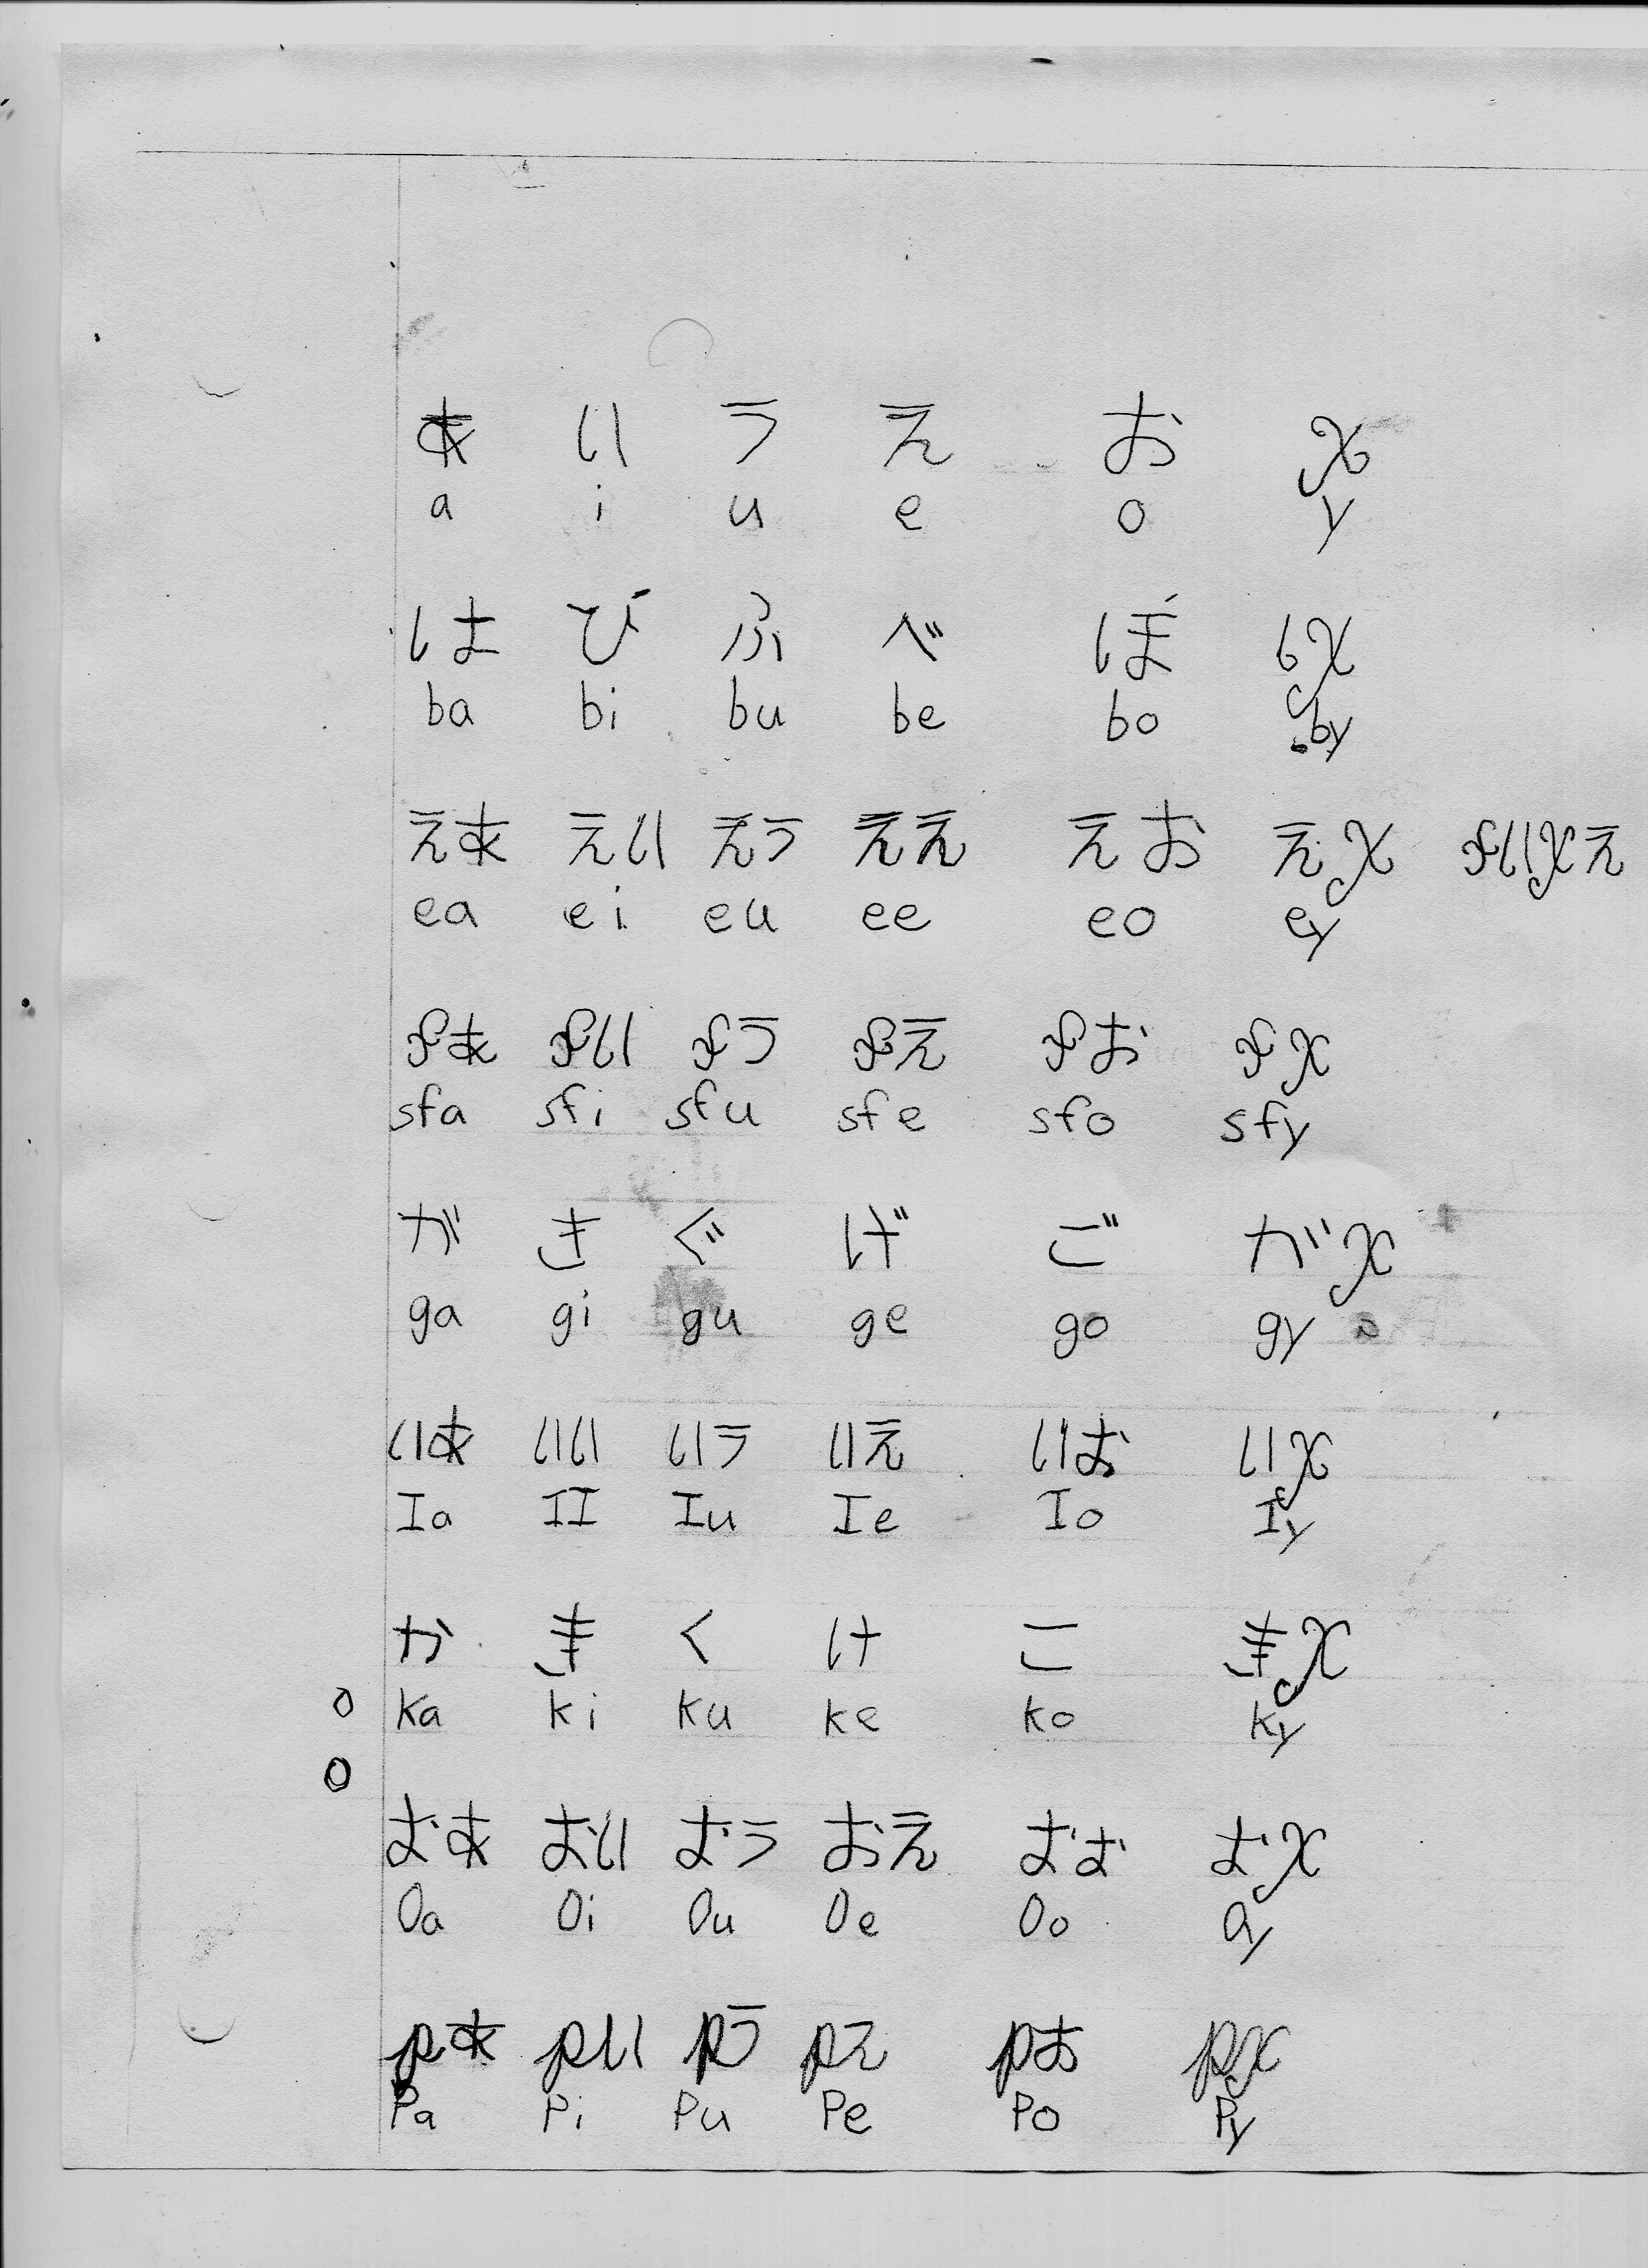 あ い う え お χ
a i u e o y
は び ふ べ ぼ しχ
ba bi bu be bo by
えあ えい えう ええ えお えχ い χえ
ea ei eu ee eo ey
あ い う え お χ
sfa sfi sfu sfe sfo sfy
が き ぐ げ ご がχ
ga gi gu ge go gy
いあ いい いう いえ いお いχ
Ia II Iu Ie Io Iy
か き く け こ きχ
o ka ki ku ke ko ky
O
おあ おい おう おえ おお おχ
Oa Oi Ou Oe Oo Oy
pあ pい pう pえ pお pχ
Pa Pi Pu Pe Po Py